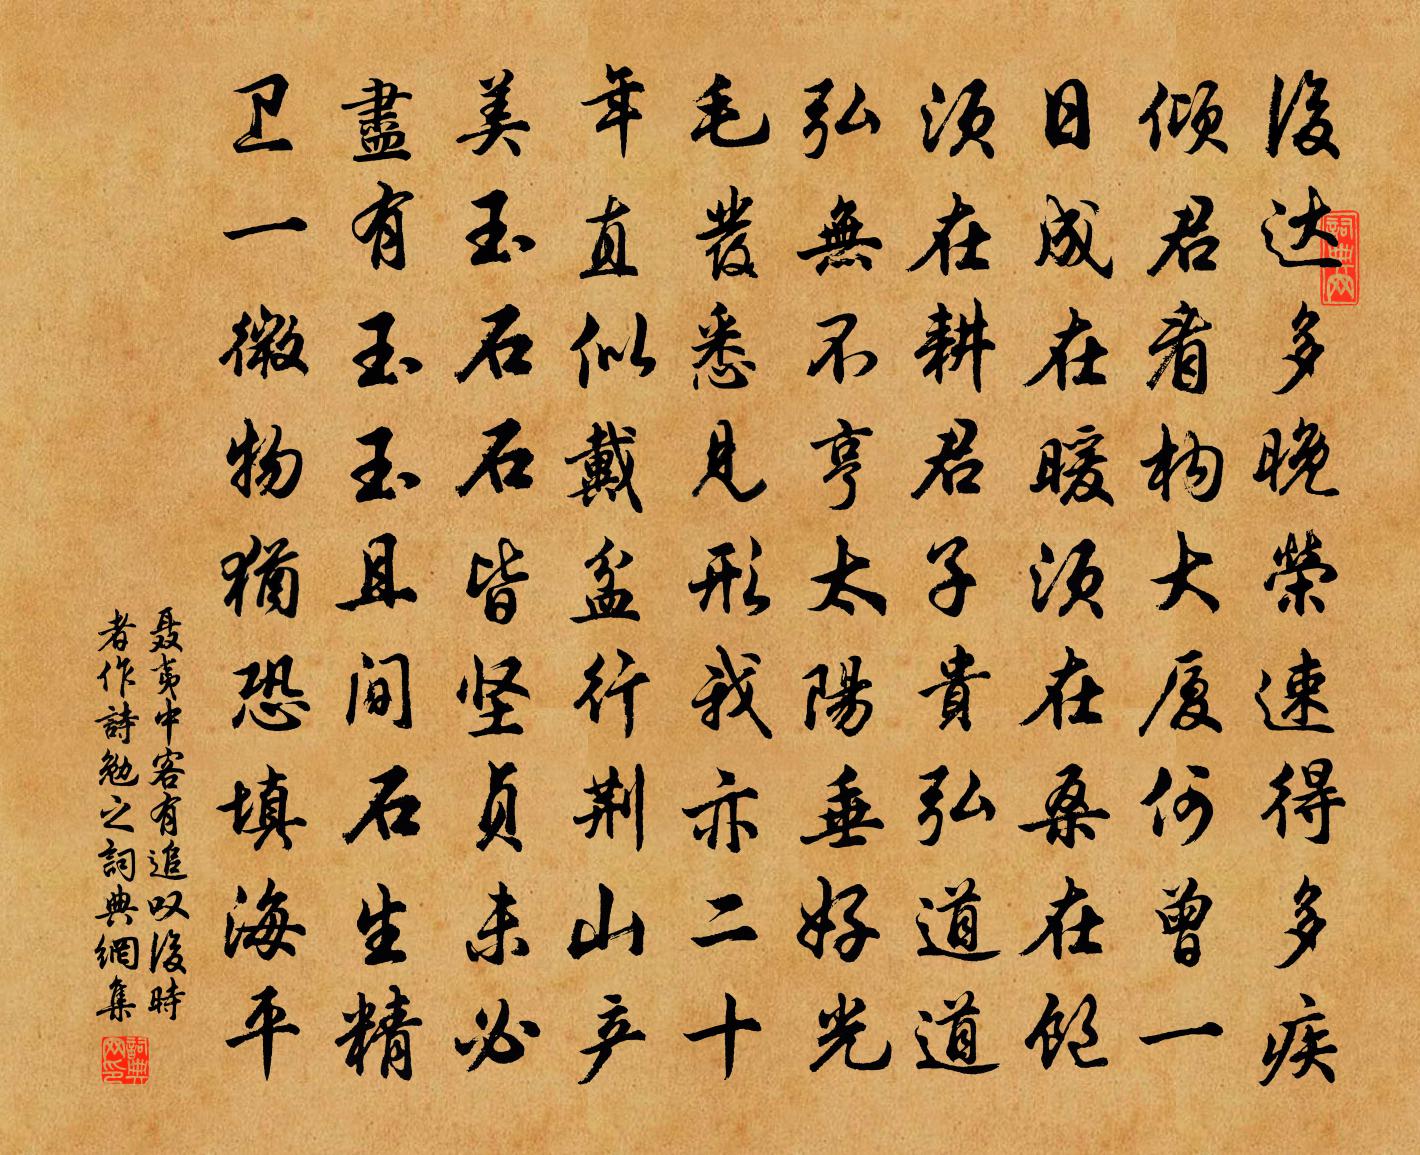 後达多晚榮速得多疾
倾君看构大厦何曾一
日成在暖须在桑在饱
须在耕君子貴弘道道
弘無不亨太陽垂好光
毛發悉見形我亦二十
年直似戴盆行荆山产
美玉石石皆坚貞未必
盡有玉玉且间石生精
卫一微物猶恐填海平
聂夷中客有追叹後時
者作詩勉之詞典網集
詞典网
詞典网印